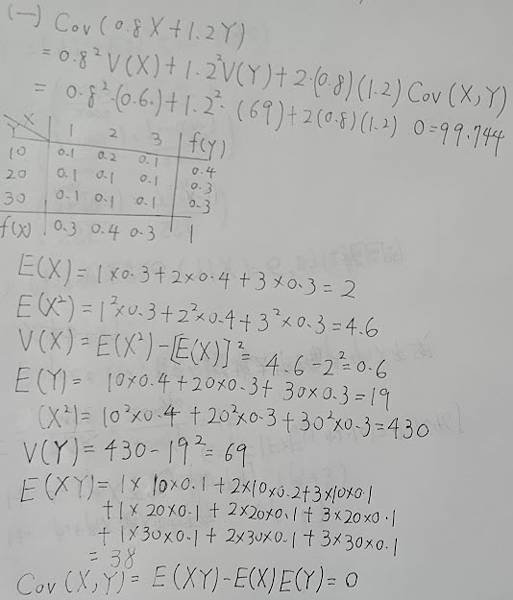 (一) Cov(0.8X+1.2Y)
= 0.8² V(X)+1.2²V(Y)+2·(0.8)(1.2)Cov(X,Y)
= 0.8²·(0.6·)+1.2²·(69)+2(0.8)(1.2) 0=99.744
Y X 1 2 3 f(Y)
10 0.1 0.2 0.1 0.4
20 0.1 0.1 0.1 0.3
30 0.1 0.1 0.1 0.3
f(X) 0.3 0.4 0.3 1
E(X)= 1×0.3+2×0.4+3×0.3=2
E(X²)= 1²×0.3+2²×0.4+3²×0.3=4.6
V(X)=E(X²)-[E(X)]²= 4.6-2²=0.6
E(Y)= 10×0.4+20×0.3+30×0.3=19
(X²)= 10²×0.4+20²×0.3+30²×0.3=430
V(Y)=430-19²=69
E(XY)=1×10×0.1+2×10×0.2+3×10×0.1
+1×20×0.1+2×20×0.1+3×20×0.1
+1×30×0.1+2×30×0.1+3×30×0.1
= 38
Cov(X,Y)=E(XY)-E(X)E(Y)=0